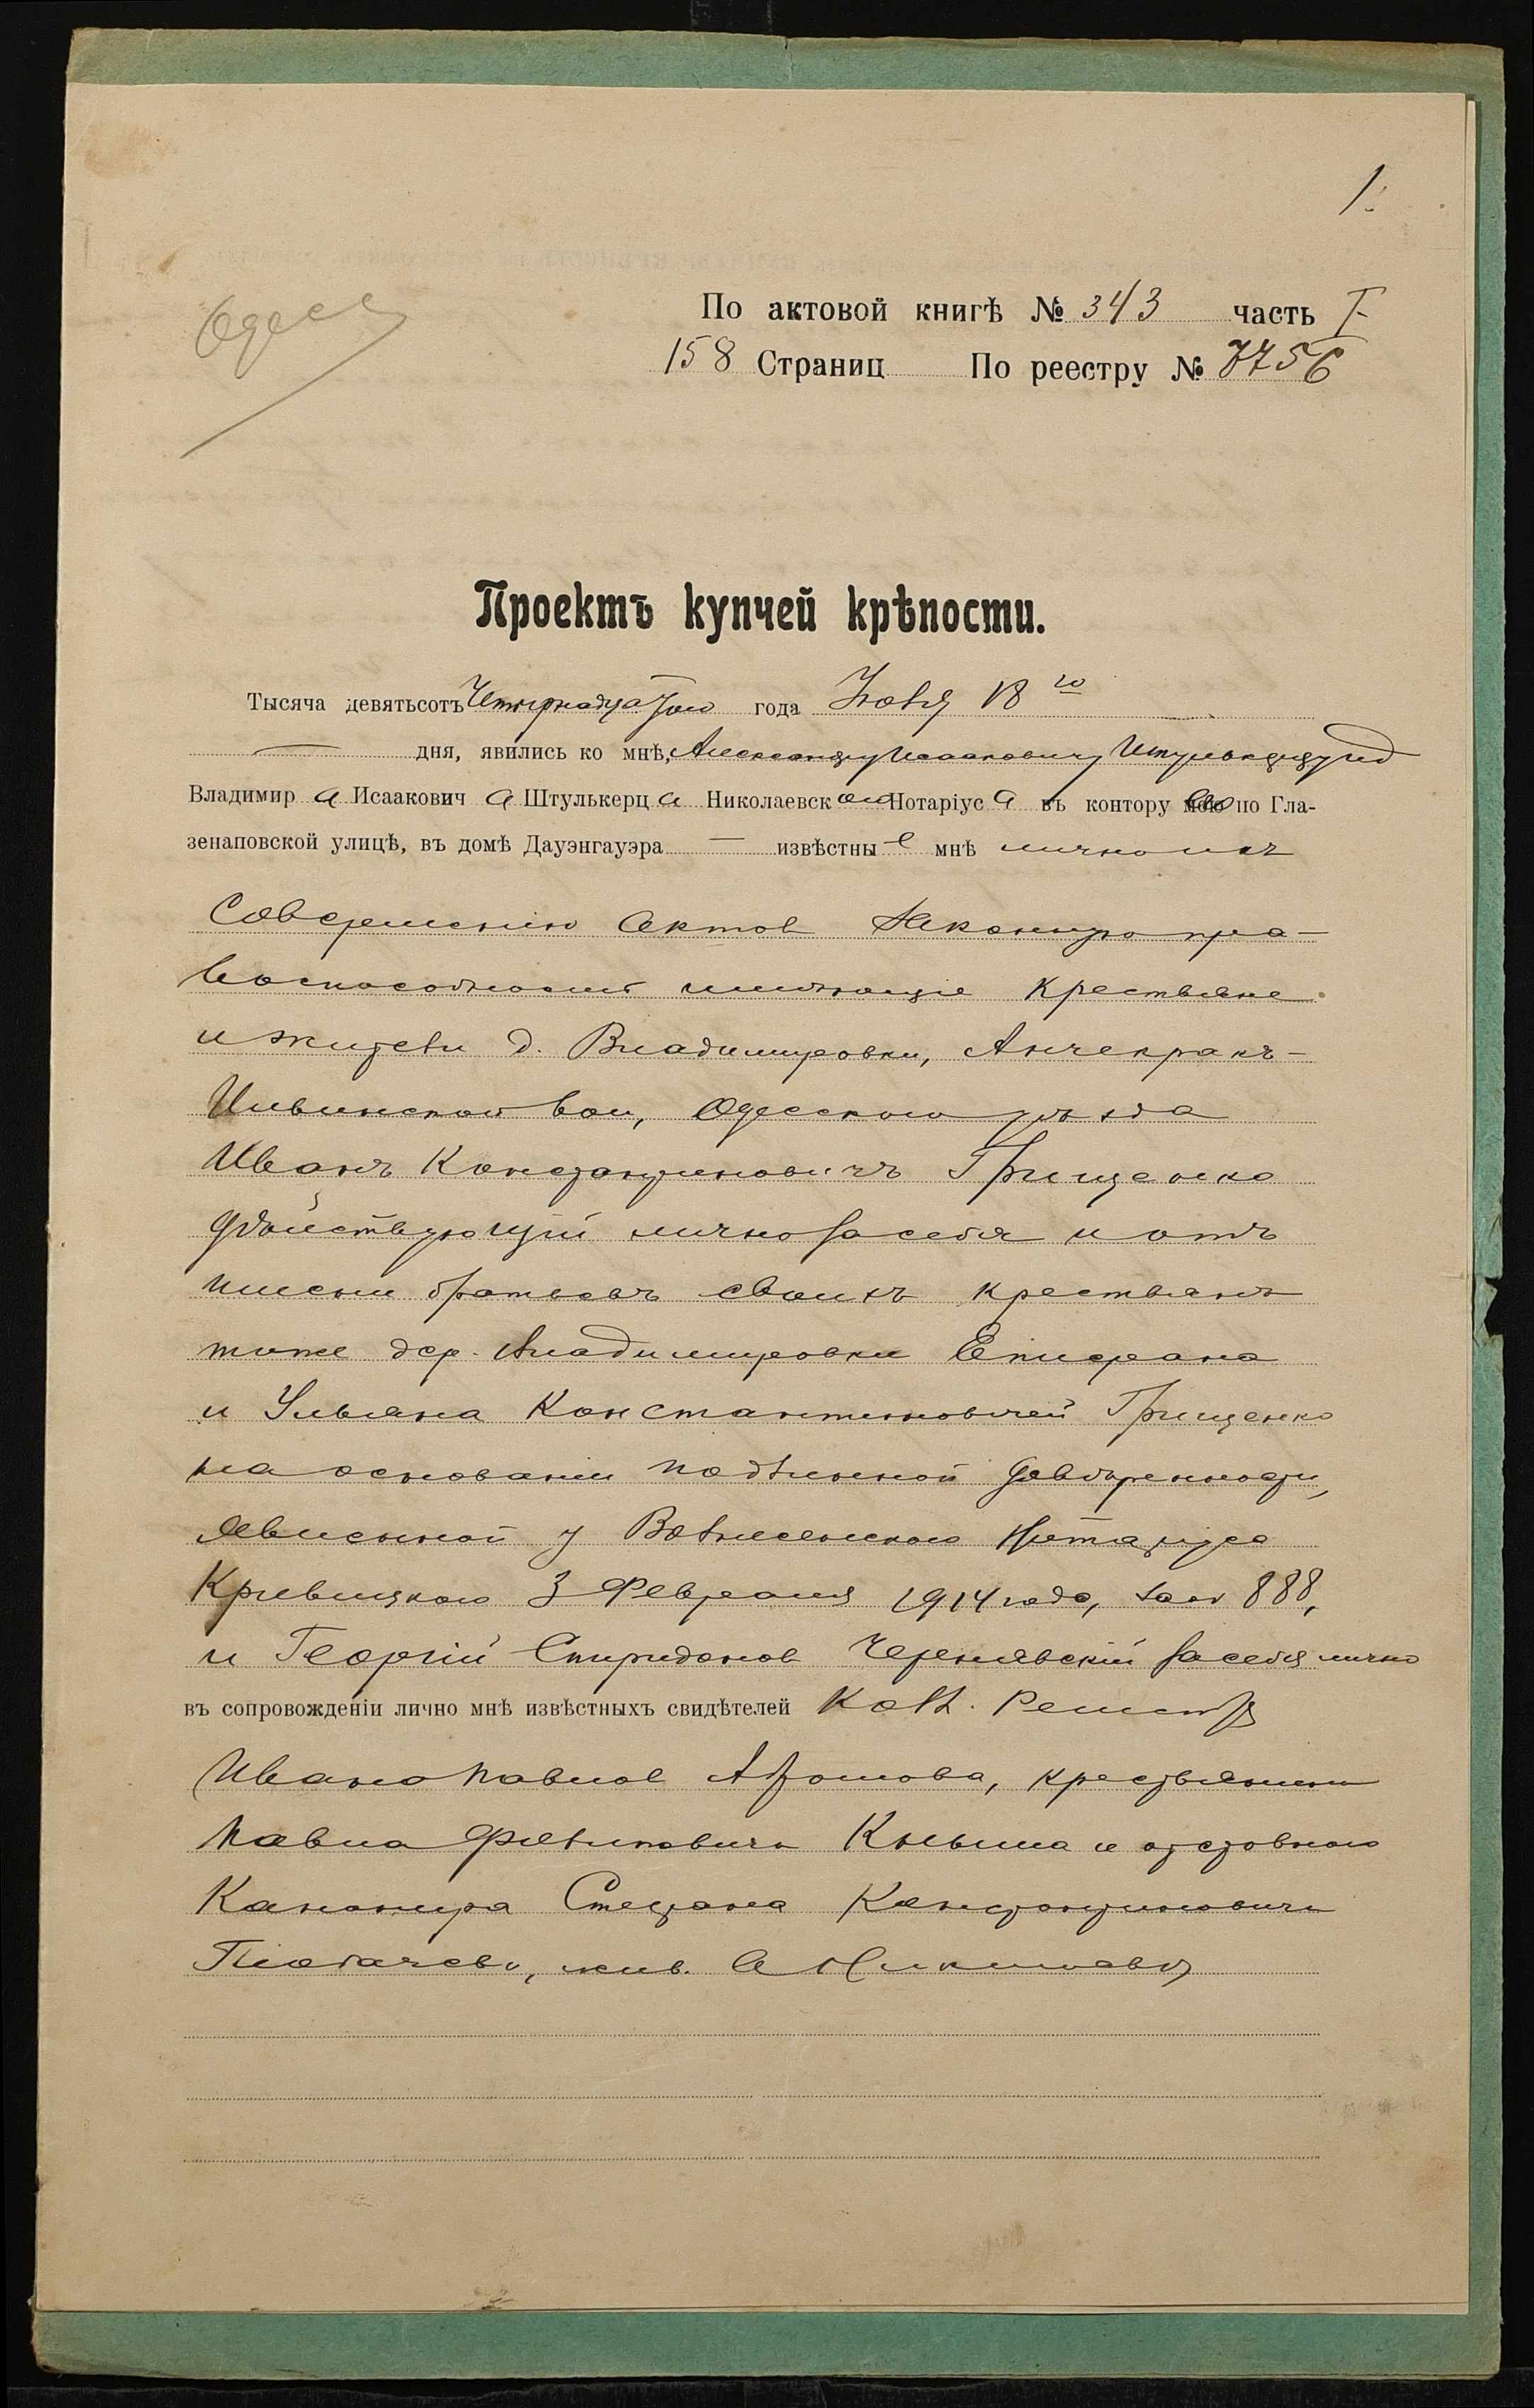 1.
Одесс
По актовой книгѣ № 343 часть I
158 Страниц По реестру № 7756
Проектъ купчей крѣпости.
Тысяча девятьсотъ Четырнадцатого года 18 го
дня, явились ко мнѣ, Александру Исааковичу
Владимир а Исаакович а Штулькерц а Николаевск ого Нотаріус а въ контору его по Гла-
зенаповской улицѣ, въ домѣ Дауэнгауэра — извѣстны е мнѣ лично и къ
совершенію актов законную пра-
воспособность имѣющіе крестьяне
и жители д. Владимировки, Анчекракъ-
Ильинской вол, Одесского уѣзда
Иванъ Константиновичъ Грищенко
дѣйствующій лично за себя и отъ
имени братьевъ своихъ крестьянъ
тоже дер. Владимировки Епифана
и Ульяна Константиновичей Грищенко
на основаніи подлинной довѣренности,
явленной у Вознесенского Нотаріуса
Кривицкого 3 Февраля 1914 года, за № 888,
и Георгій Спиридонов Чернявскій за себя лично
въ сопровожденіи лично мнѣ извѣстныхъ свидѣтелей Кол. Регистр
Ивана Павлов крестьянина
Павла Филиповича и отставного
Канонира Степана Константиновича
жив. в Николаевѣ